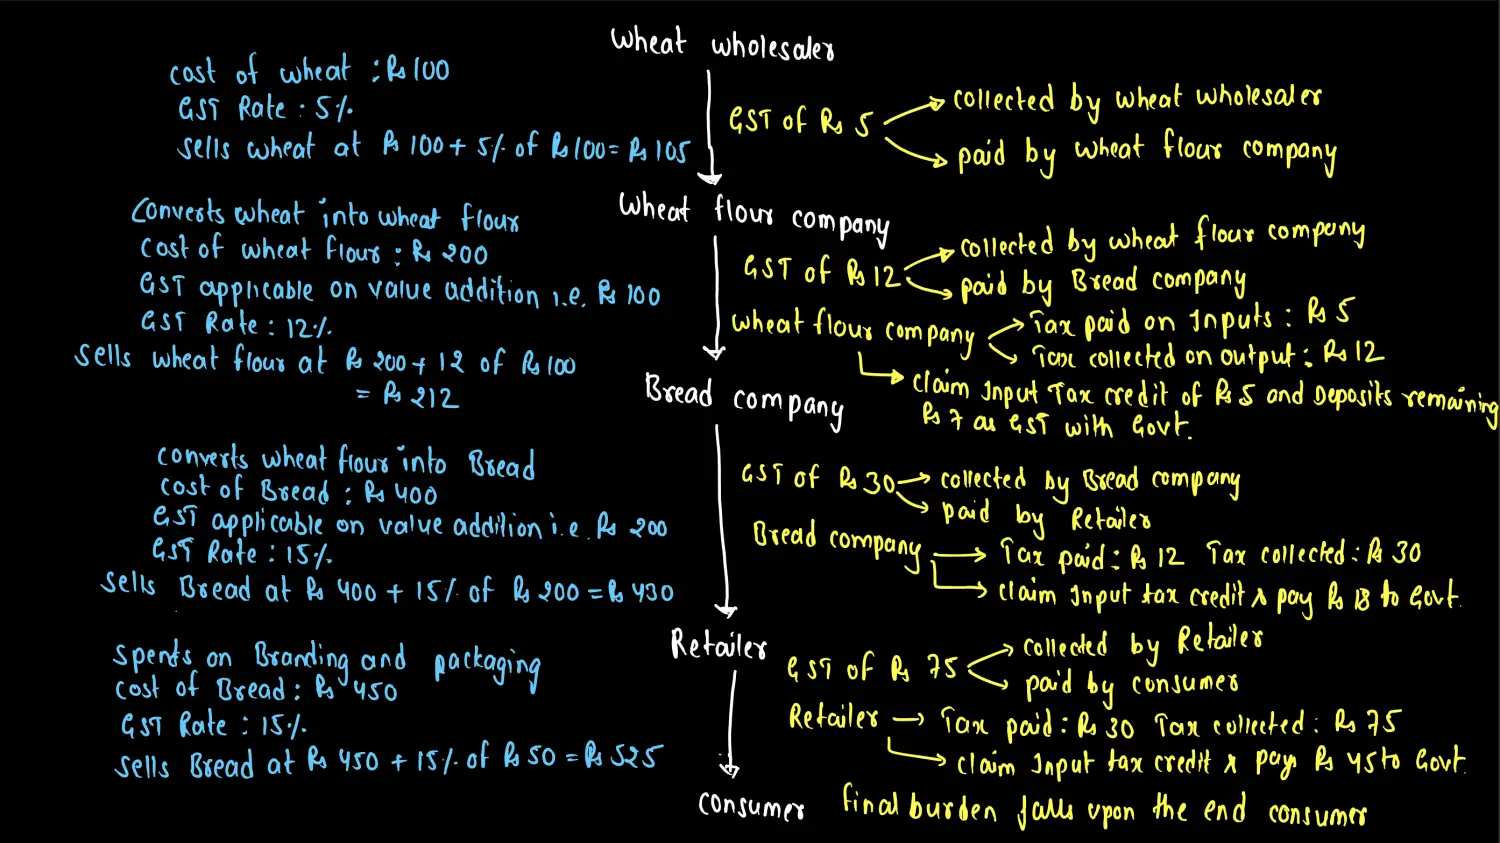 Wheat wholesaler
cost of wheat : Rs 100
GST Rate : 5%
sells wheat at Rs 100 + 5% of Rs 100 = Rs 105
GST of Rs 5
collected by wheat wholesaler
paid by wheat flour company
Wheat flour company
Converts wheat into wheat flour
cost of wheat flour : Rs 200
GST applicable on value addition i.e. Rs 100
GST Rate : 12%
sells wheat flour at Rs 200 + 12 of Rs 100
= Rs 212
GST of Rs 12
collected by wheat flour company
paid by Bread company
wheat flour company
Tax paid on Inputs : Rs 5
Tax collected on output : Rs 12
claim Input Tax credit of Rs 5 and Deposits remaining
Rs 7 as GST with Govt.
Bread company
converts wheat flour into Bread
cost of Bread : Rs 400
GST applicable on value addition i.e. Rs 200
GST Rate : 15%
sells Bread at Rs 400 + 15% of Rs 200 = Rs 430
GST of Rs 30
collected by Bread company
paid by Retailer
Bread company
Tax paid : Rs 12 Tax collected : Rs 30
claim Input tax credit & pay Rs 18 to Govt.
Retailer
spends on Branding and packaging
cost of Bread : Rs 450
GST Rate : 15%
sells Bread at Rs 450 + 15% of Rs 50 = Rs 525
GST of Rs 75
collected by Retailer
paid by consumer
Retailer
Tax paid : Rs 30 Tax collected : Rs 75
claim Input tax credit & pay Rs 45 to Govt.
consumer
final burden falls upon the end consumer